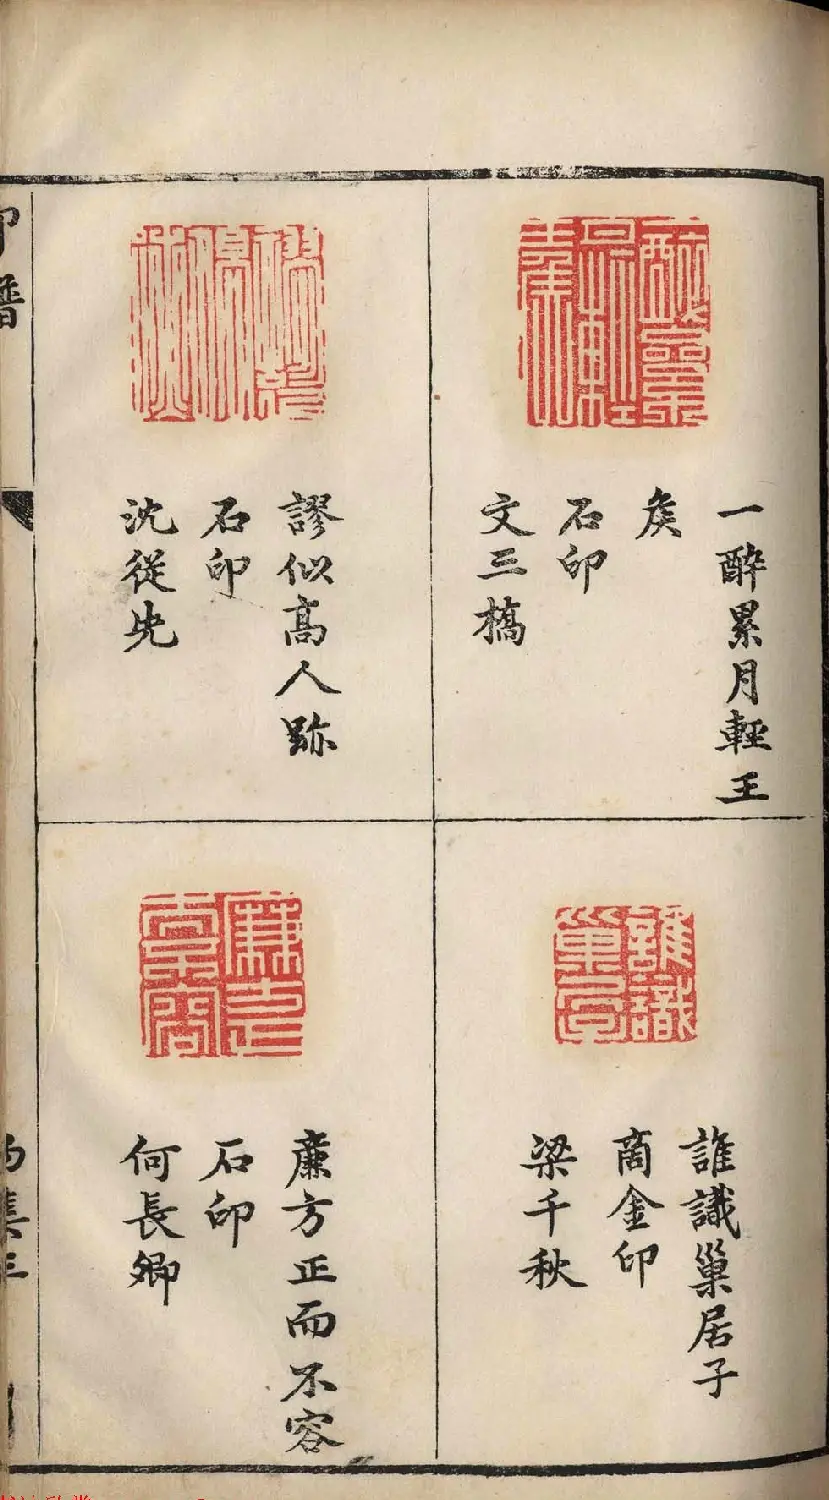 一醉累月輕王
矦
石印
文三橋
謬似高人跡
石印
沈從先
誰識巢居子
商金印
梁千秋
廉方正而不容
石印
何長卿
印譜